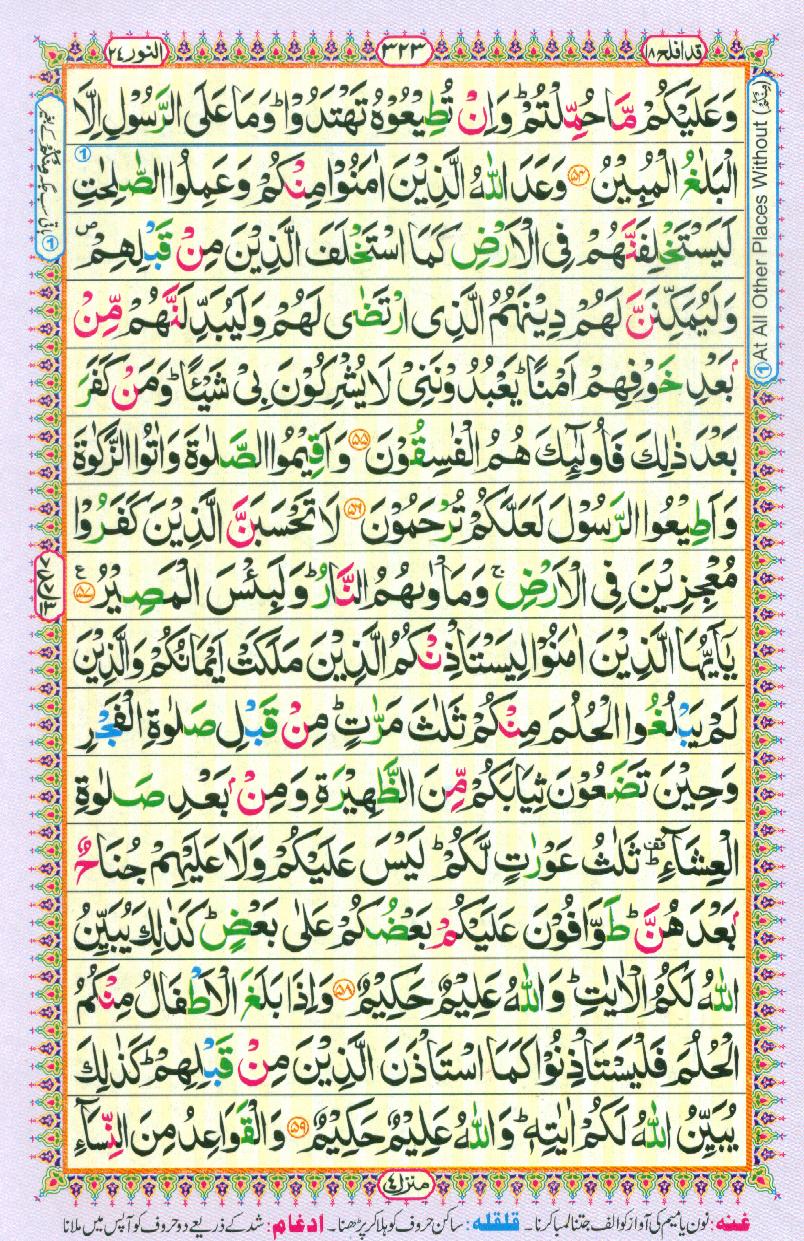 قد افلح ۱۸
۳۲۳
النور ۲۴
وَعَلَيْكُمْ مَّا حُمِّلْتُمْ ؕ وَاِنْ تُطِيْعُوْهُ تَهْتَدُوْا ؕ وَمَا عَلَى الرَّسُوْلِ اِلَّا
الْبَلٰغُ الْمُبِيْنُ ﴿۵۴﴾ وَعَدَ اللّٰهُ الَّذِيْنَ اٰمَنُوْا مِنْكُمْ وَعَمِلُوا الصّٰلِحٰتِ
لَيَسْتَخْلِفَنَّهُمْ فِى الْاَرْضِ كَمَا اسْتَخْلَفَ الَّذِيْنَ مِنْ قَبْلِهِمْ ص
وَلَيُمَكِّنَنَّ لَهُمْ دِيْنَهُمُ الَّذِى ارْتَضٰى لَهُمْ وَلَيُبَدِّلَنَّهُمْ مِّنْ
بَعْدِ خَوْفِهِمْ اَمْنًا ؕ يَعْبُدُوْنَنِىْ لَا يُشْرِكُوْنَ بِىْ شَيْـًٔا ؕ وَمَنْ كَفَرَ
بَعْدَ ذٰلِكَ فَاُولٰٓئِكَ هُمُ الْفٰسِقُوْنَ ﴿۵۵﴾ وَاَقِيْمُوا الصَّلٰوةَ وَاٰتُوا الزَّكٰوةَ
وَاَطِيْعُوا الرَّسُوْلَ لَعَلَّكُمْ تُرْحَمُوْنَ ﴿۵۶﴾ لَا تَحْسَبَنَّ الَّذِيْنَ كَفَرُوْا
مُعْجِزِيْنَ فِى الْاَرْضِ ۚ وَمَاْوٰىهُمُ النَّارُ ؕ وَلَبِئْسَ الْمَصِيْرُ ﴿۵۷﴾ ع
يٰۤاَيُّهَا الَّذِيْنَ اٰمَنُوْا لِيَسْتَاْذِنْكُمُ الَّذِيْنَ مَلَكَتْ اَيْمَانُكُمْ وَالَّذِيْنَ
لَمْ يَبْلُغُوا الْحُلُمَ مِنْكُمْ ثَلٰثَ مَرّٰتٍ ؕ مِنْ قَبْلِ صَلٰوةِ الْفَجْرِ
وَحِيْنَ تَضَعُوْنَ ثِيَابَكُمْ مِّنَ الظَّهِيْرَةِ وَمِنْۢ بَعْدِ صَلٰوةِ
الْعِشَآءِ ؕ ثَلٰثُ عَوْرٰتٍ لَّكُمْ ؕ لَيْسَ عَلَيْكُمْ وَلَا عَلَيْهِمْ جُنَاحٌۢ
بَعْدَهُنَّ ؕ طَوّٰفُوْنَ عَلَيْكُمْ بَعْضُكُمْ عَلٰى بَعْضٍ ؕ كَذٰلِكَ يُبَيِّنُ
اللّٰهُ لَكُمُ الْاٰيٰتِ ؕ وَاللّٰهُ عَلِيْمٌ حَكِيْمٌ ﴿۵۸﴾ وَاِذَا بَلَغَ الْاَطْفَالُ مِنْكُمُ
الْحُلُمَ فَلْيَسْتَاْذِنُوْا كَمَا اسْتَاْذَنَ الَّذِيْنَ مِنْ قَبْلِهِمْ ؕ كَذٰلِكَ
يُبَيِّنُ اللّٰهُ لَكُمْ اٰيٰتِهٖ ؕ وَاللّٰهُ عَلِيْمٌ حَكِيْمٌ ﴿۵۹﴾ وَالْقَوَاعِدُ مِنَ النِّسَآءِ
منزل ۴
غنه: نون یا میم کی آواز کو الف جتنا لمبا کرنا۔ قلقله: ساکن حروف کو ہلا کر پڑھنا۔ ادغام: شد کے ذریعے دو حروف کو آپس میں ملانا
① At All Other Places Without (مِنْكُمْ)